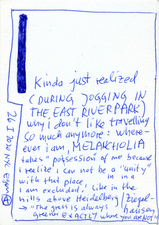 Kinda just realized
(DURING JOGGING IN
THE EAST RIVER PARK)
why I don't like travelling
so much anymore: where-
ever i am, MELANCHOLIA
takes "possession of me because
I realize i can not be a "unity"
with that place! in in a
I am excluded. (like in the
hills above Heidelberg / Ziegel-
hausen
→ The grass is always
greener EXACTLY where you are NOT